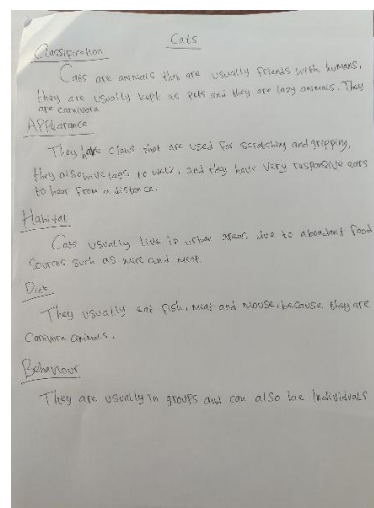 Cats
Classification
Cats are animals that are usually friends with humans,
they are usually kept as pets and they are lazy animals. They
are carnivora
Appearance
They have claws that are used for scratching and gripping,
they also have legs to walk, and they have very responsive ears
to hear from a distance.
Habitat
Cats usually live in urban areas due to abundant food
sources such as mice and meat.
Diet
They usually eat fish, meat and mouse, because they are
carnivora animals.
Behaviour
They are usually in groups and can also be individuals